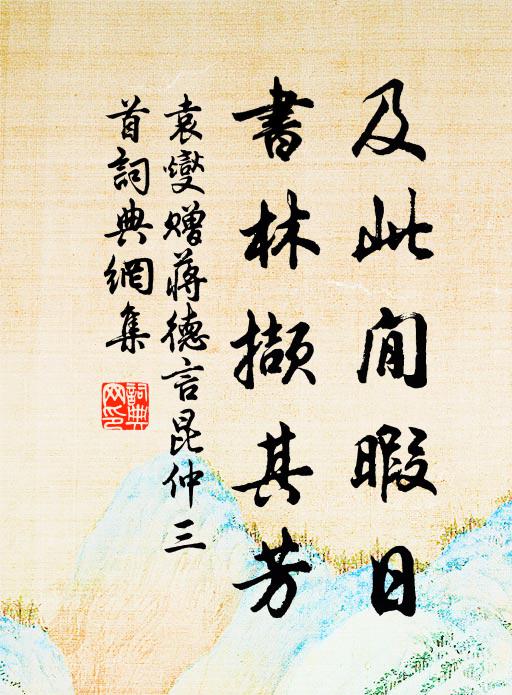 及此閒暇日
書林擷其芳
袁燮贈蔣德言昆仲三
首詞典網集
詞典網印